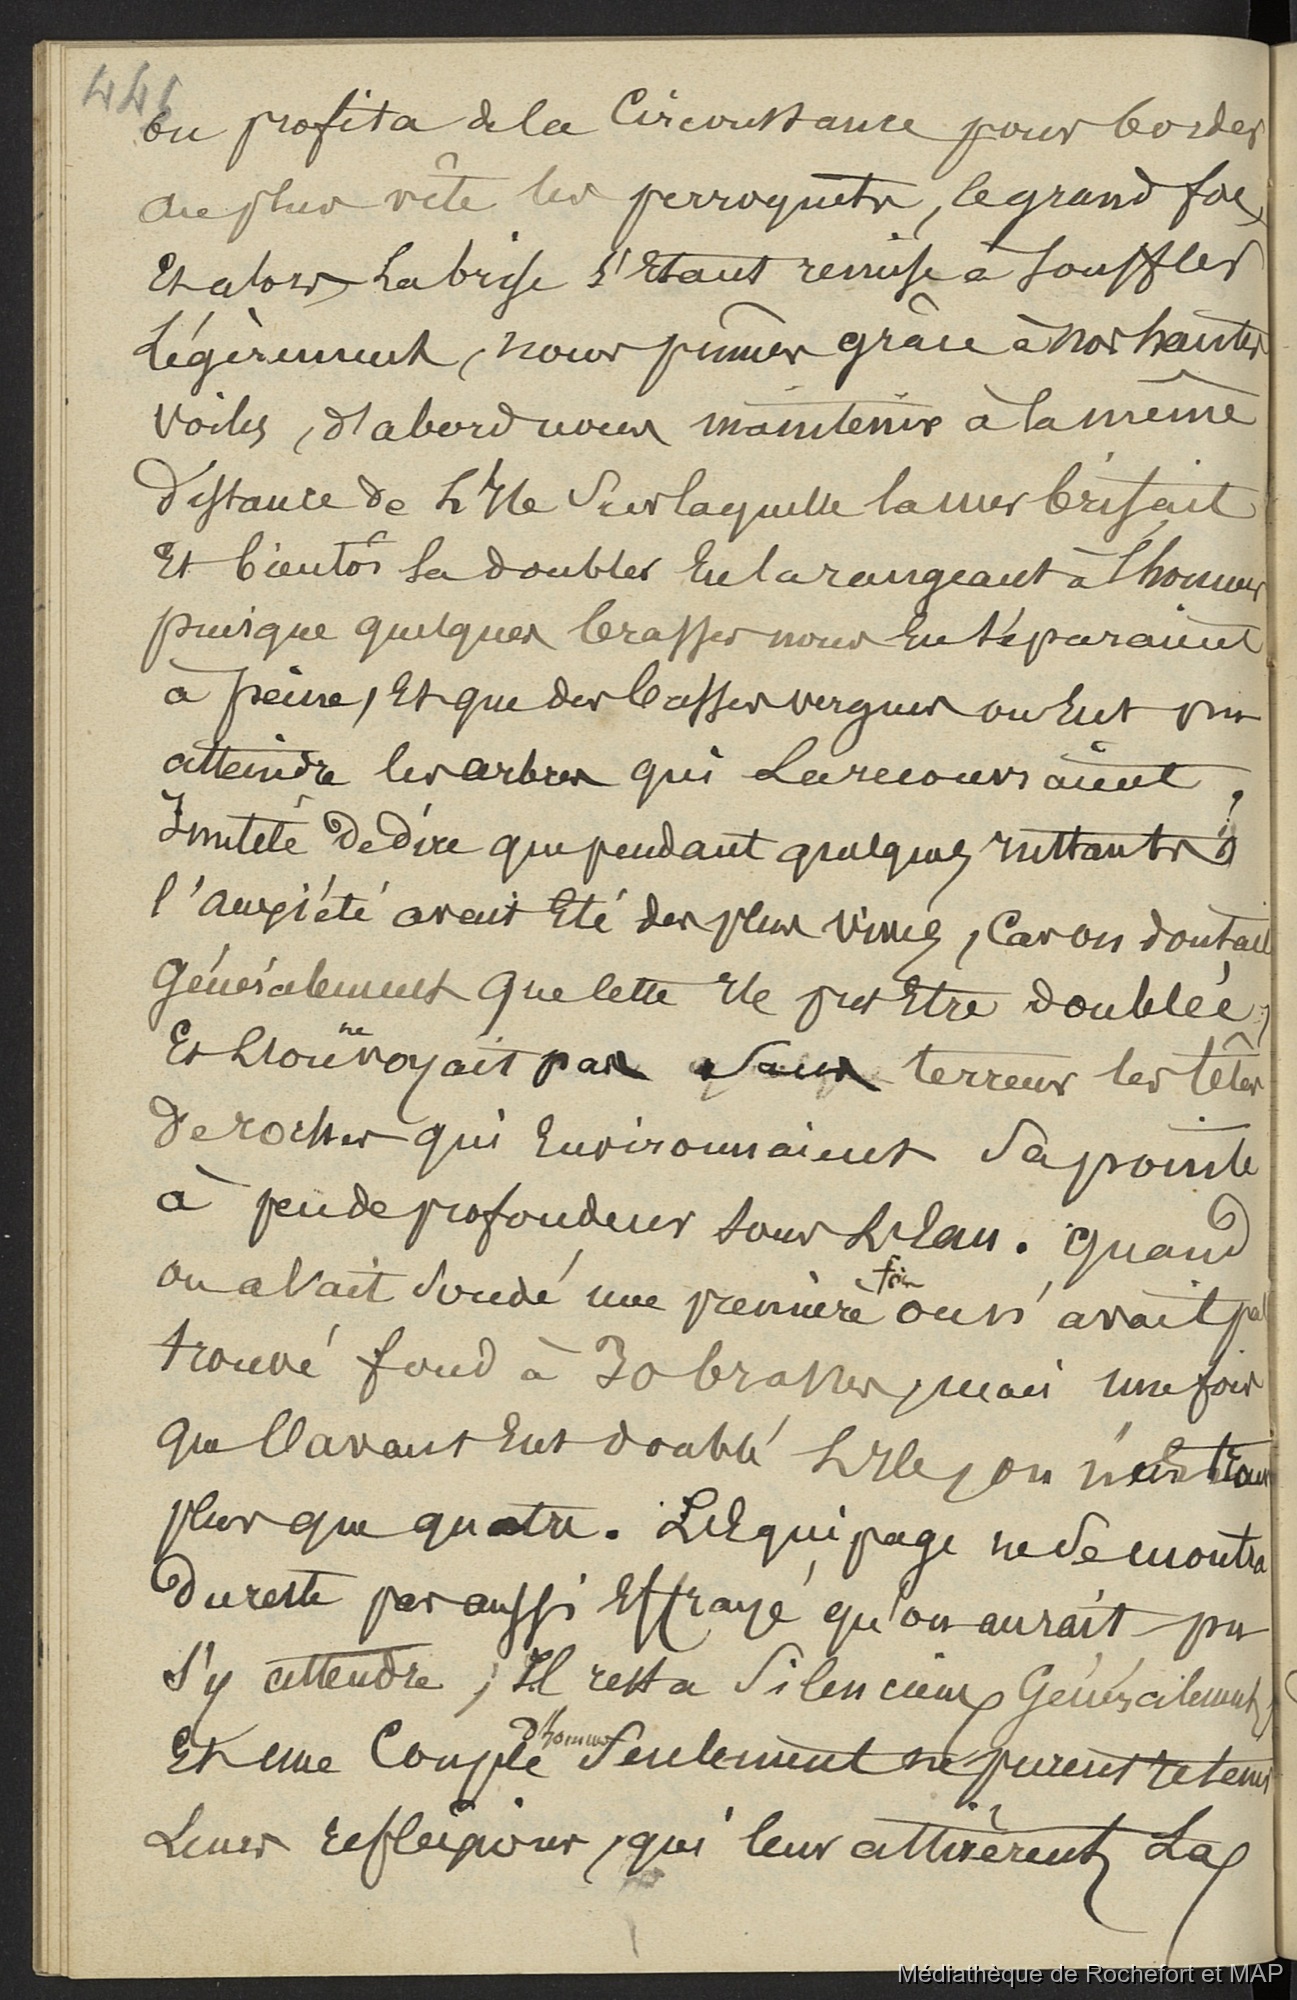 446
on profita de la Circonstance pour border
au plus vite les perroquets, le grand foc,
Et alors, La brise s'Etant remise à souffler
Légèrement, nous pûmes grâce à nos hautes
voiles, d'abord nous maintenir à la même
distance de L'Ile Sur laquelle la mer brisait
Et bientôt La doubler En la rangeant à l'honneur
puisque quelques brasses nous En séparaient
à peine, Et que des basses vergues on Eut pu
atteindre les arbres qui La recouvraient.
Inutile De dire que pendant quelques instants
l'anxiété avait Eté des plus vives, Car on doutait
Généralement Que cette Ile put Etre doublée,
Et L'on ne voyait pas sans terreur les têtes
De roches qui Environnaient Sa pointe
à peu de profondeur sous L'Eau. Quand
on avait Sondé une première fois on n'avait pas
trouvé fond à 30 brasses, mais une fois
que l'avant Eut doublé L'Ile, on n'eut
plus que quatre. L'Equipage ne Se montra
Du reste pas aussi Effrayé qu'on aurait pu
S'y attendre, Il resta Silencieux Généralement,
Et une Couple d'hommes Seulement ne purent retenir
Leurs reflexions, qui leur attirèrent La
Médiathèque de Rochefort et MAP